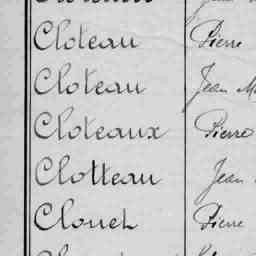 Cloteau Pierre
Cloteau Jean M
Cloteaux Pierre
Clotteau Jean
Clouet Pierre